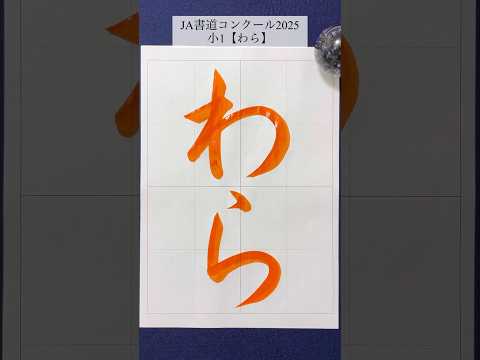 JA書道コンクール2025
小1【わら】
わ
ら